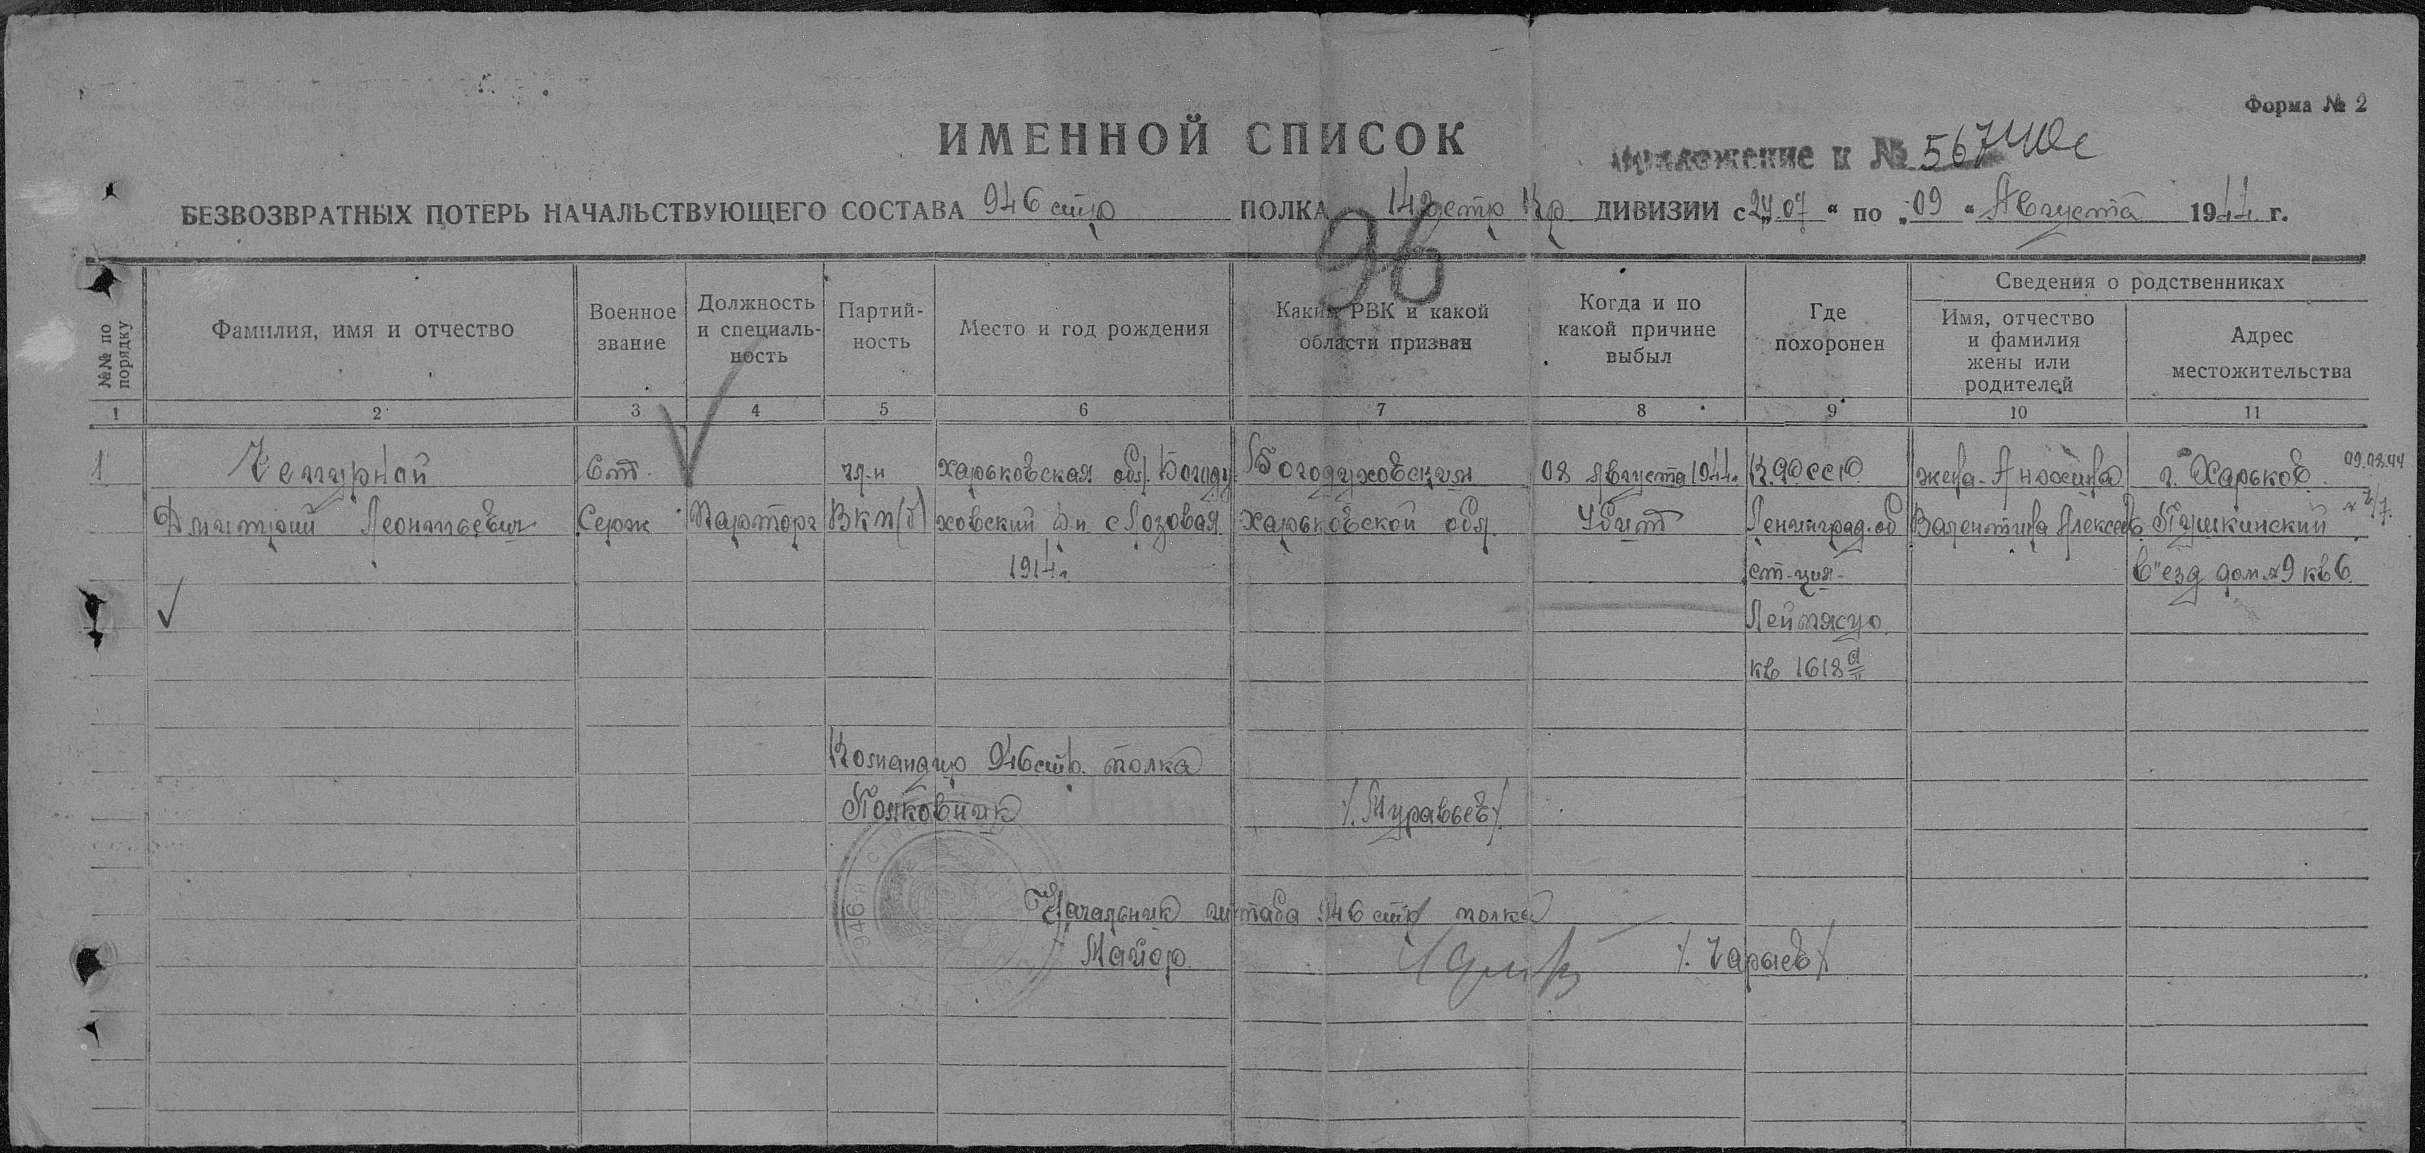 Форма № 2
ИМЕННОЙ СПИСОК
Приложение к № 56740с
БЕЗВОЗВРАТНЫХ ПОТЕРЬ НАЧАЛЬСТВУЮЩЕГО СОСТАВА 946 стр ПОЛКА ДИВИЗИИ с 24.07 “ по „ 09 “ Августа 1944 г.
96
№№ по порядку
Фамилия, имя и отчество
Военное звание
Должность и специаль-ность
Партий-ность
Место и год рождения
Каким РВК и какой области призван
Когда и по какой причине выбыл
Где похоронен
Сведения о родственниках
Имя, отчество и фамилия жены или родителей
Адрес местожительства
1 2 3 4 5 6 7 8 9 10 11
1 Чепурной Ст. чл-н Харьковская обл. Богоду- Богодуховским 08 Августа 1944г. К.ФССР жена- г. Харьков
Дмитрий Леонтьевич Серж Парторг ВКП(б) ховский р-н с Лозовая Харьковской обл. Убит Ленинград. об Валентина Алексеев Пушкинский
1914г. ст-ция- в"езд дом №9 кв 6
Лейпясуо
кв 1618
Командир 946 стр. полка
Полковник /. Муравьев/
Начальник штаба 946 стр полка
Майор /. Чарыев/